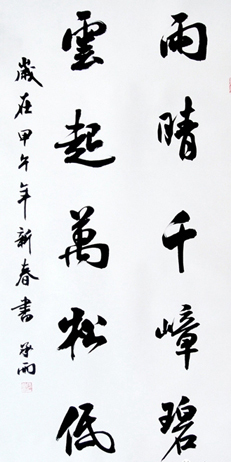 雨晴千嶂碧
雲起萬松低
歲在甲午年新春書 承雨